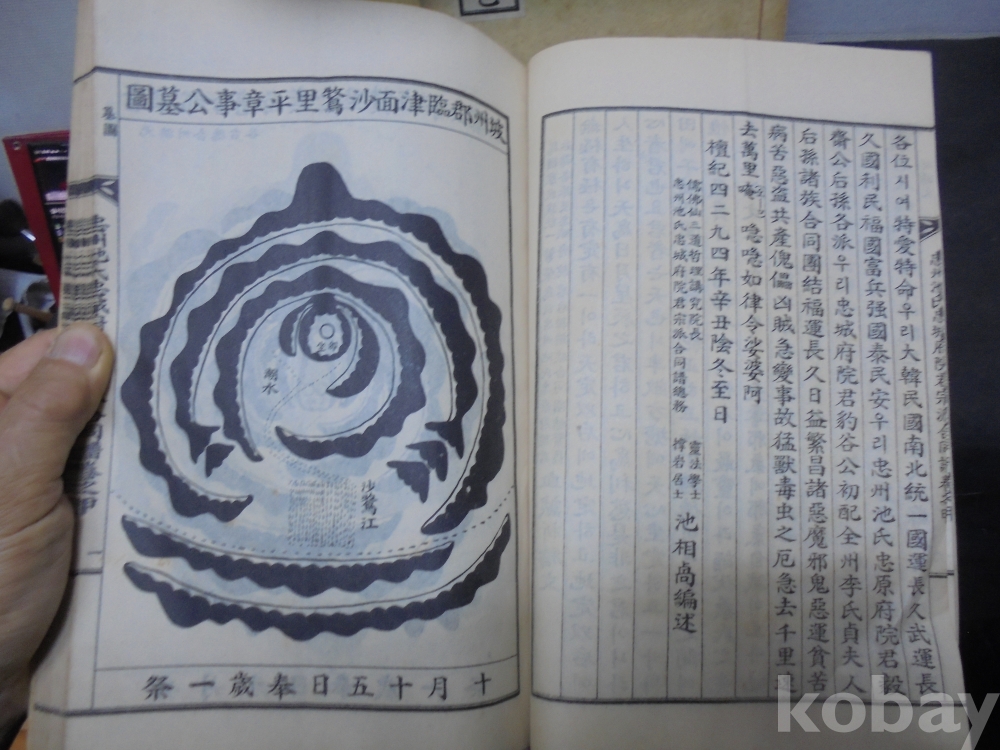 各位시여特愛特命우리大韓民國南北統一國運長久武運長
久國利民福國富兵强國泰民安우리忠州池氏忠原府院君毅
齋公后孫各派우리忠城府院君豹谷公初配全州李氏貞夫人
后孫諸族合同團結福運長久日益繁昌諸惡魔邪鬼惡運貧苦
病苦惡盜共產傀儡凶賊急變事故猛獸毒虫之厄急去千里遠
去萬里唵 急急如律令娑婆阿
檀紀四二九四年辛丑陰冬至日
儒佛仙三道哲理講究院長 靈法學士
忠州池氏忠城府院君宗派合同譜總務 居士
池相 編述
坡州郡臨津面沙鶩里平章事公墓圖
墓圖
湖水
沙鶩江
十月十五日奉歲一祭
一
kobay